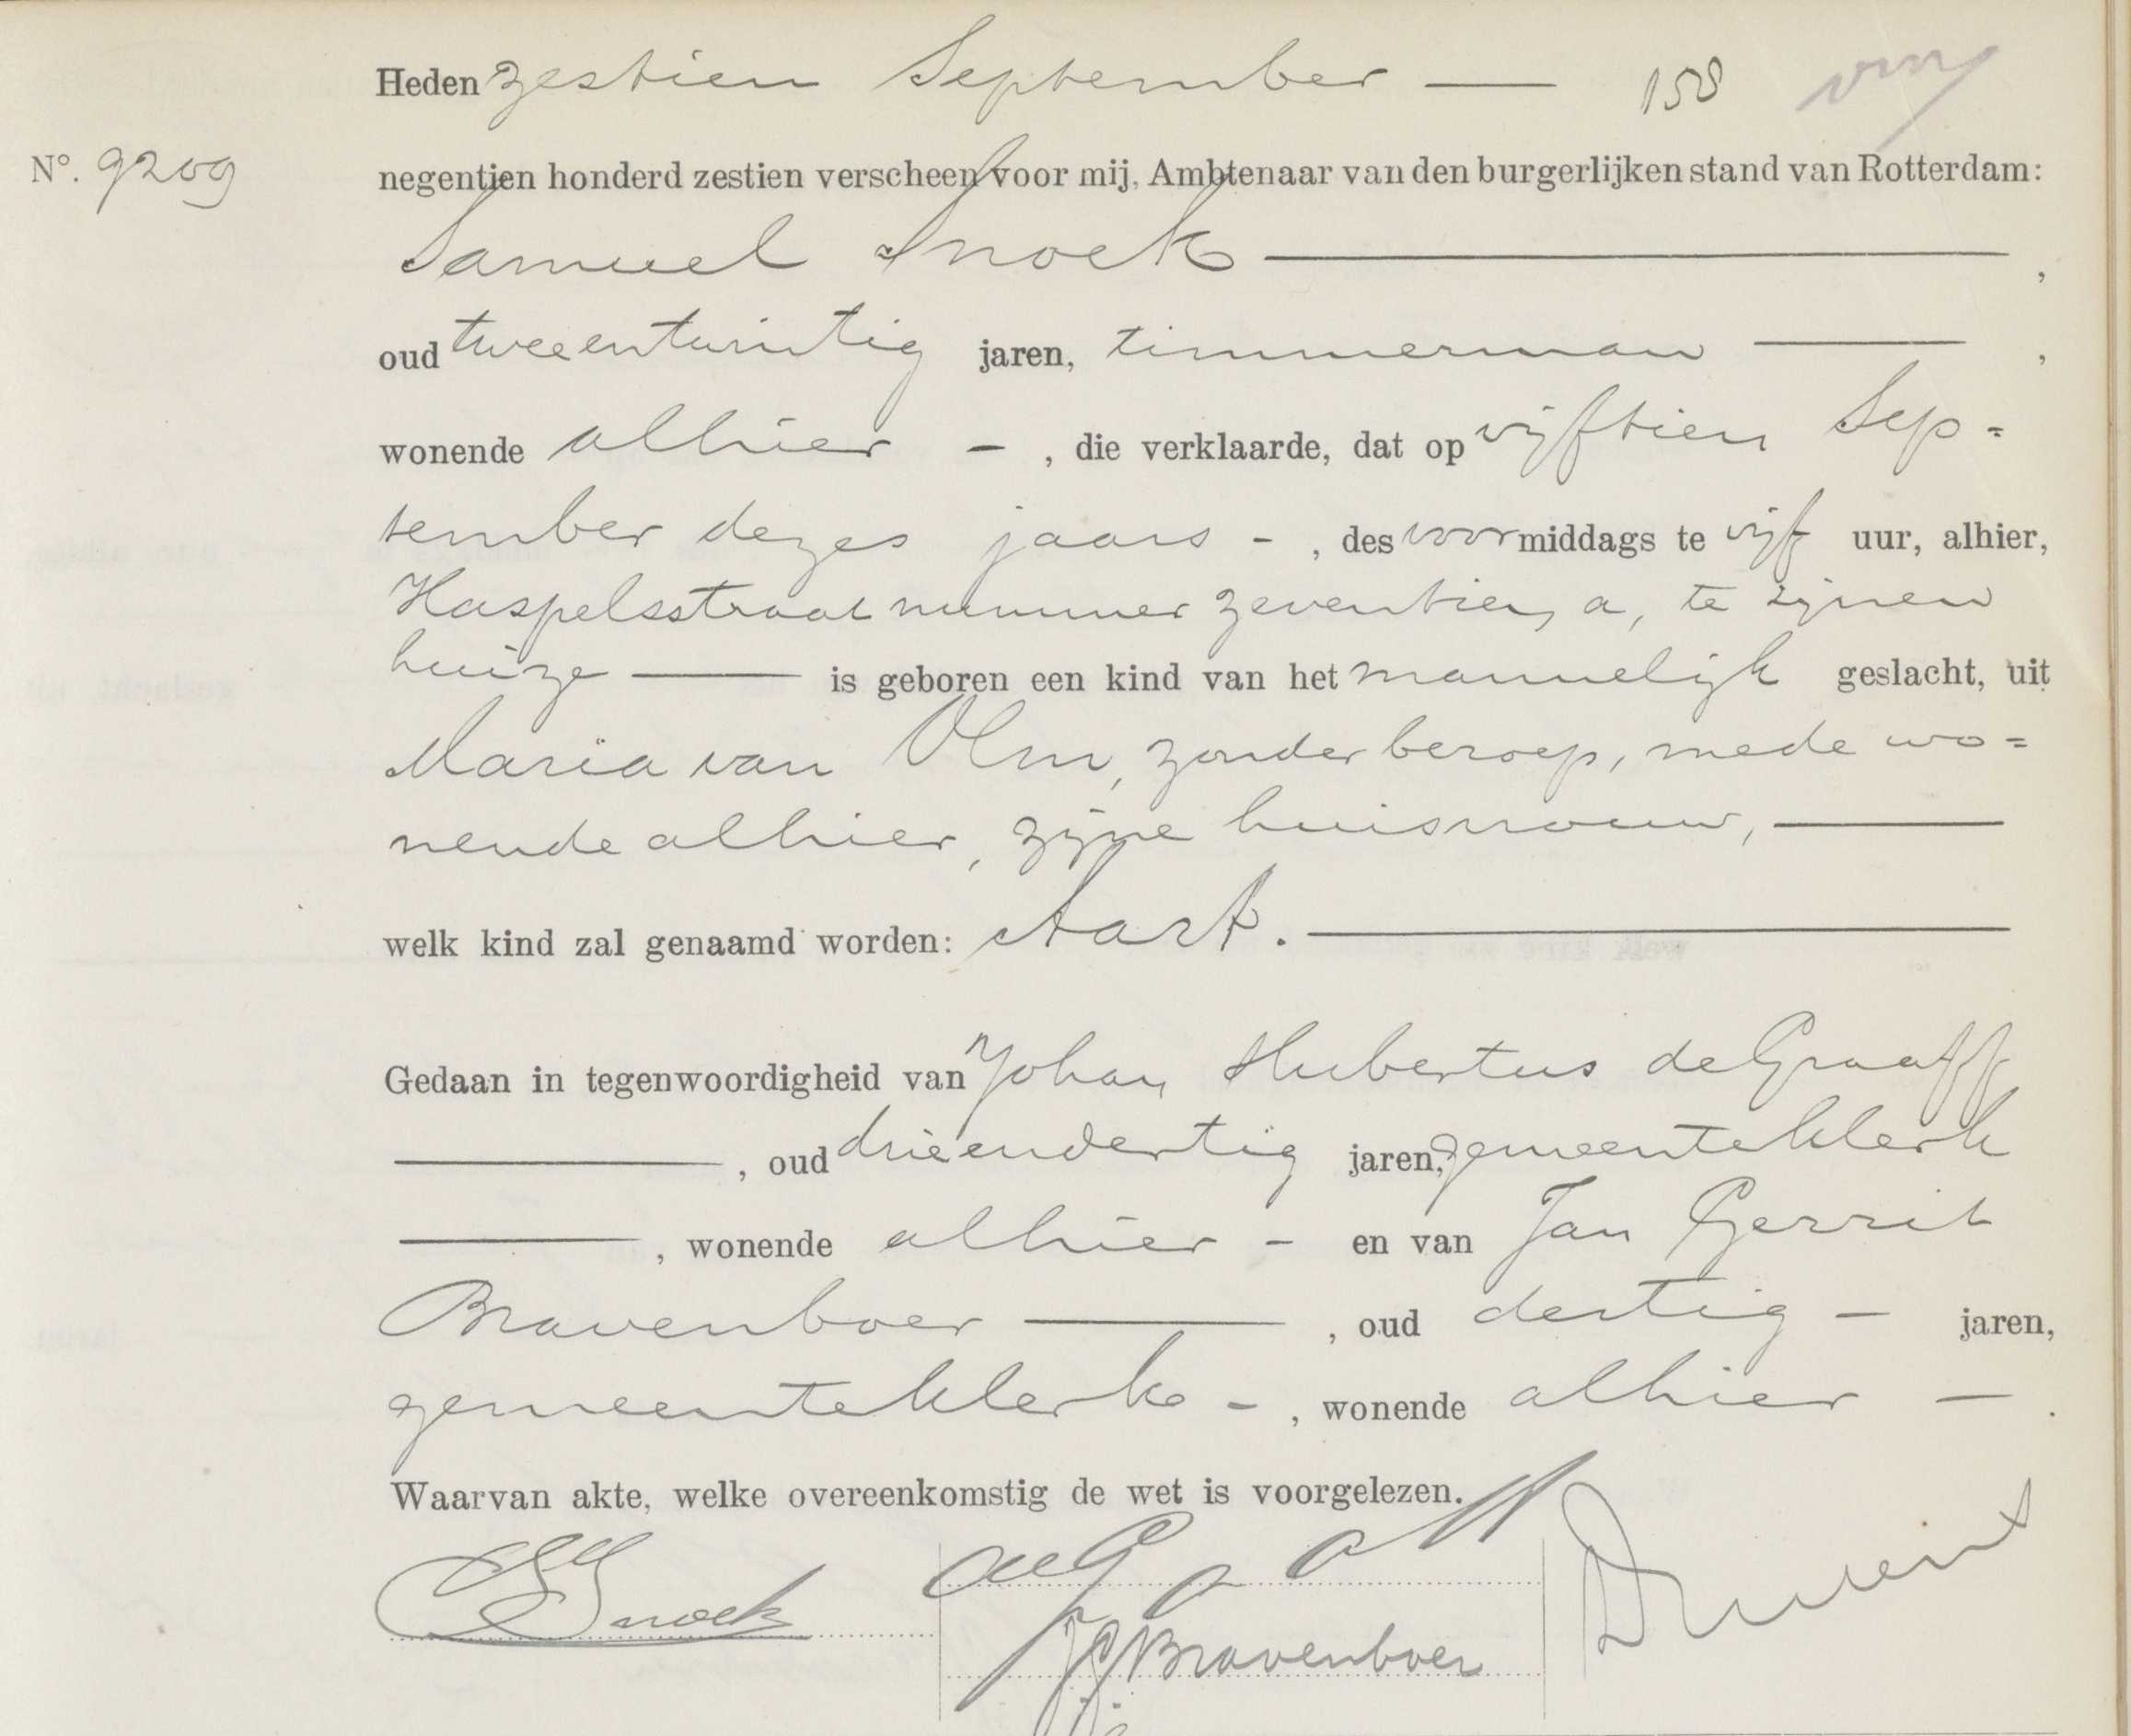 Heden zestien September — 158
Nº. 9209
negentien honderd zestien verscheen voor mij, Ambtenaar van den burgerlijken stand van Rotterdam:
Samuel Snoek —,
oud tweeentwintig jaren, timmerman —,
wonende alhier - , die verklaarde, dat op vijftien Sep=
tember dezes jaars - , des voormiddags te vijf uur, alhier,
Haspelsstraat nummer zeventien a, te zijnen
huize — is geboren een kind van het mannelijk geslacht, uit
Maria van Olm, zonder beroep, mede wo=
nende alhier, zijne huisvrouw, —
welk kind zal genaamd worden: Aart. —
Gedaan in tegenwoordigheid van Johan Hubertus de Graaff
— , oud drieendertig jaren, gemeenteklerk
— , wonende alhier - en van Jan Gerrit
Bravenboer — , oud dertig — jaren,
gemeenteklerk - , wonende alhier — .
Waarvan akte, welke overeenkomstig de wet is voorgelezen.
SSnoek
deGraaff
JGBravenboer